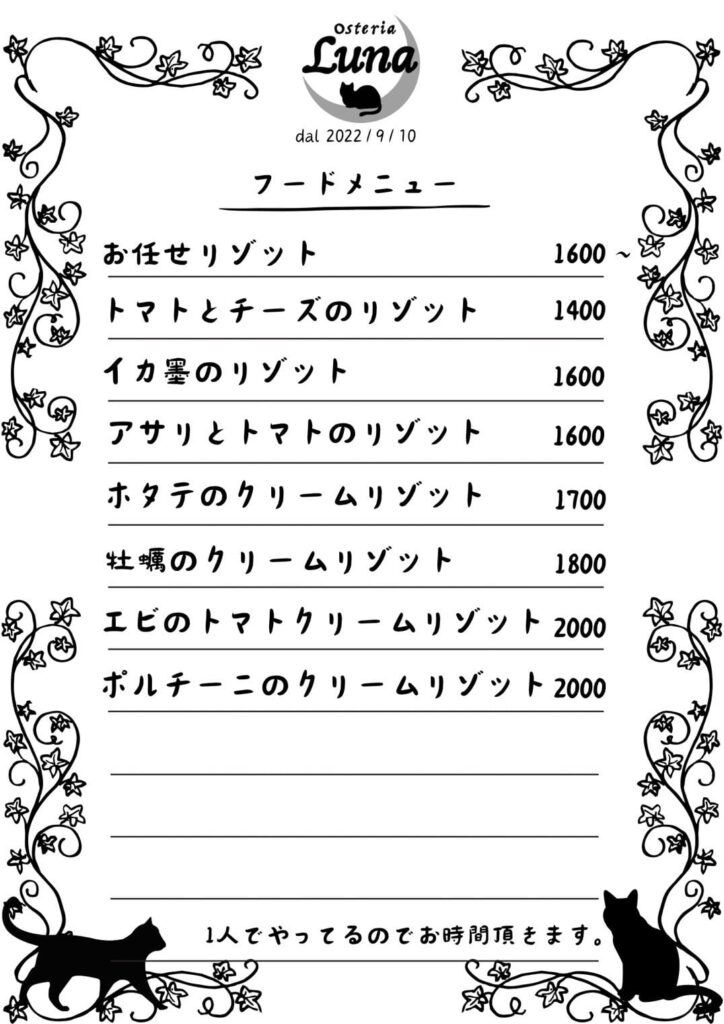 Osteria
Luna
dal 2022/9/10
フードメニュー
お任せリゾット 1600~
トマトとチーズのリゾット 1400
イカ墨のリゾット 1600
アサリとトマトのリゾット 1600
ホタテのクリームリゾット 1700
牡蠣のクリームリゾット 1800
エビのトマトクリームリゾット 2000
ポルチーニのクリームリゾット 2000
1人でやってるのでお時間頂きます。